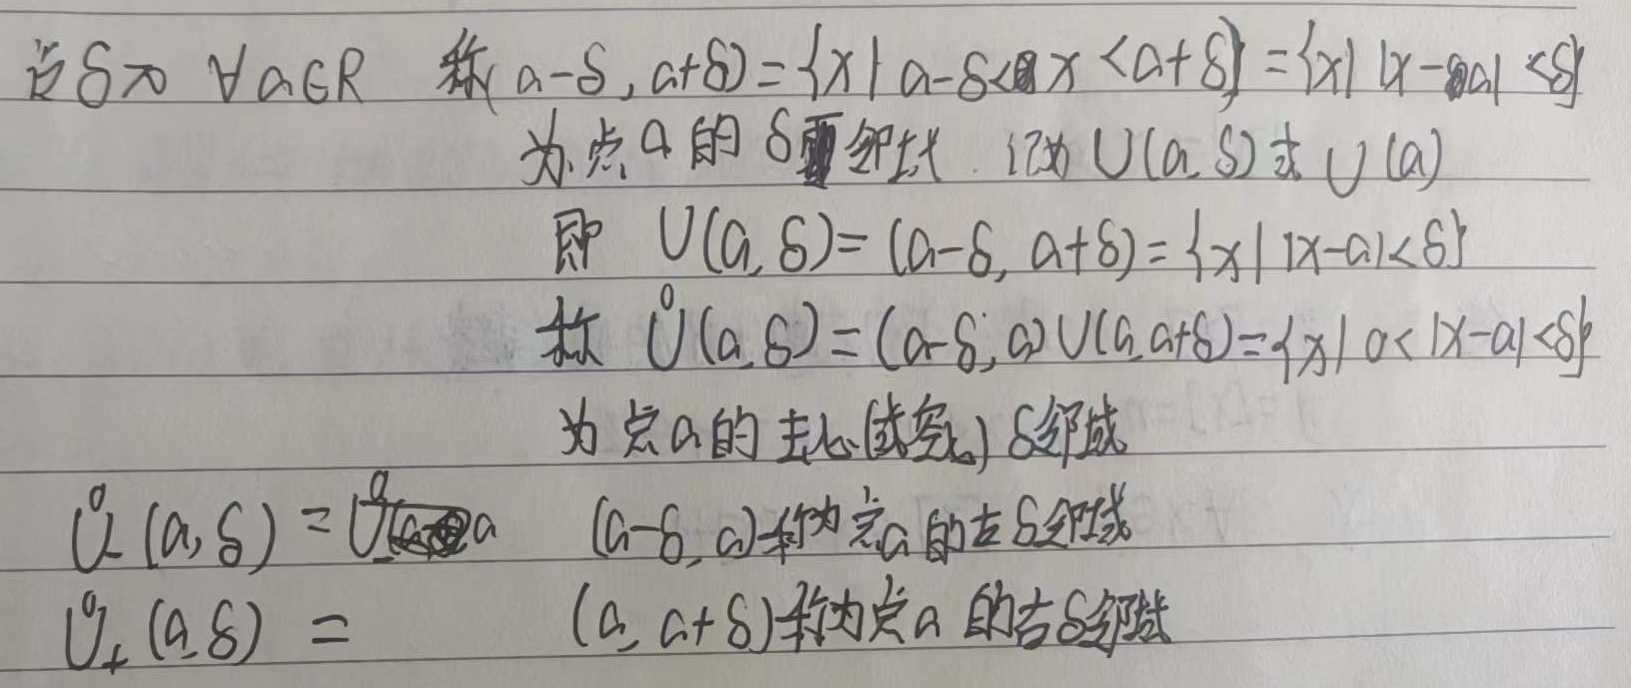 设δ>0 ∀a∈R 称(a-δ, a+δ)={x| a-δ<x<a+δ}={x| |x-a|<δ}
为点a的δ邻域. 记为U(a,δ)或U(a)
即 U(a,δ)=(a-δ, a+δ)={x| |x-a|<δ}
称 Ů(a,δ)=(a-δ,a)∪(a,a+δ)={x| 0<|x-a|<δ}
为点a的去心(或空心)δ邻域
Ů₋(a,δ) = Ů₋ a (a-δ,a)称为点a的左δ邻域
Ů₊(a,δ) = (a, a+δ)称为点a的右δ邻域